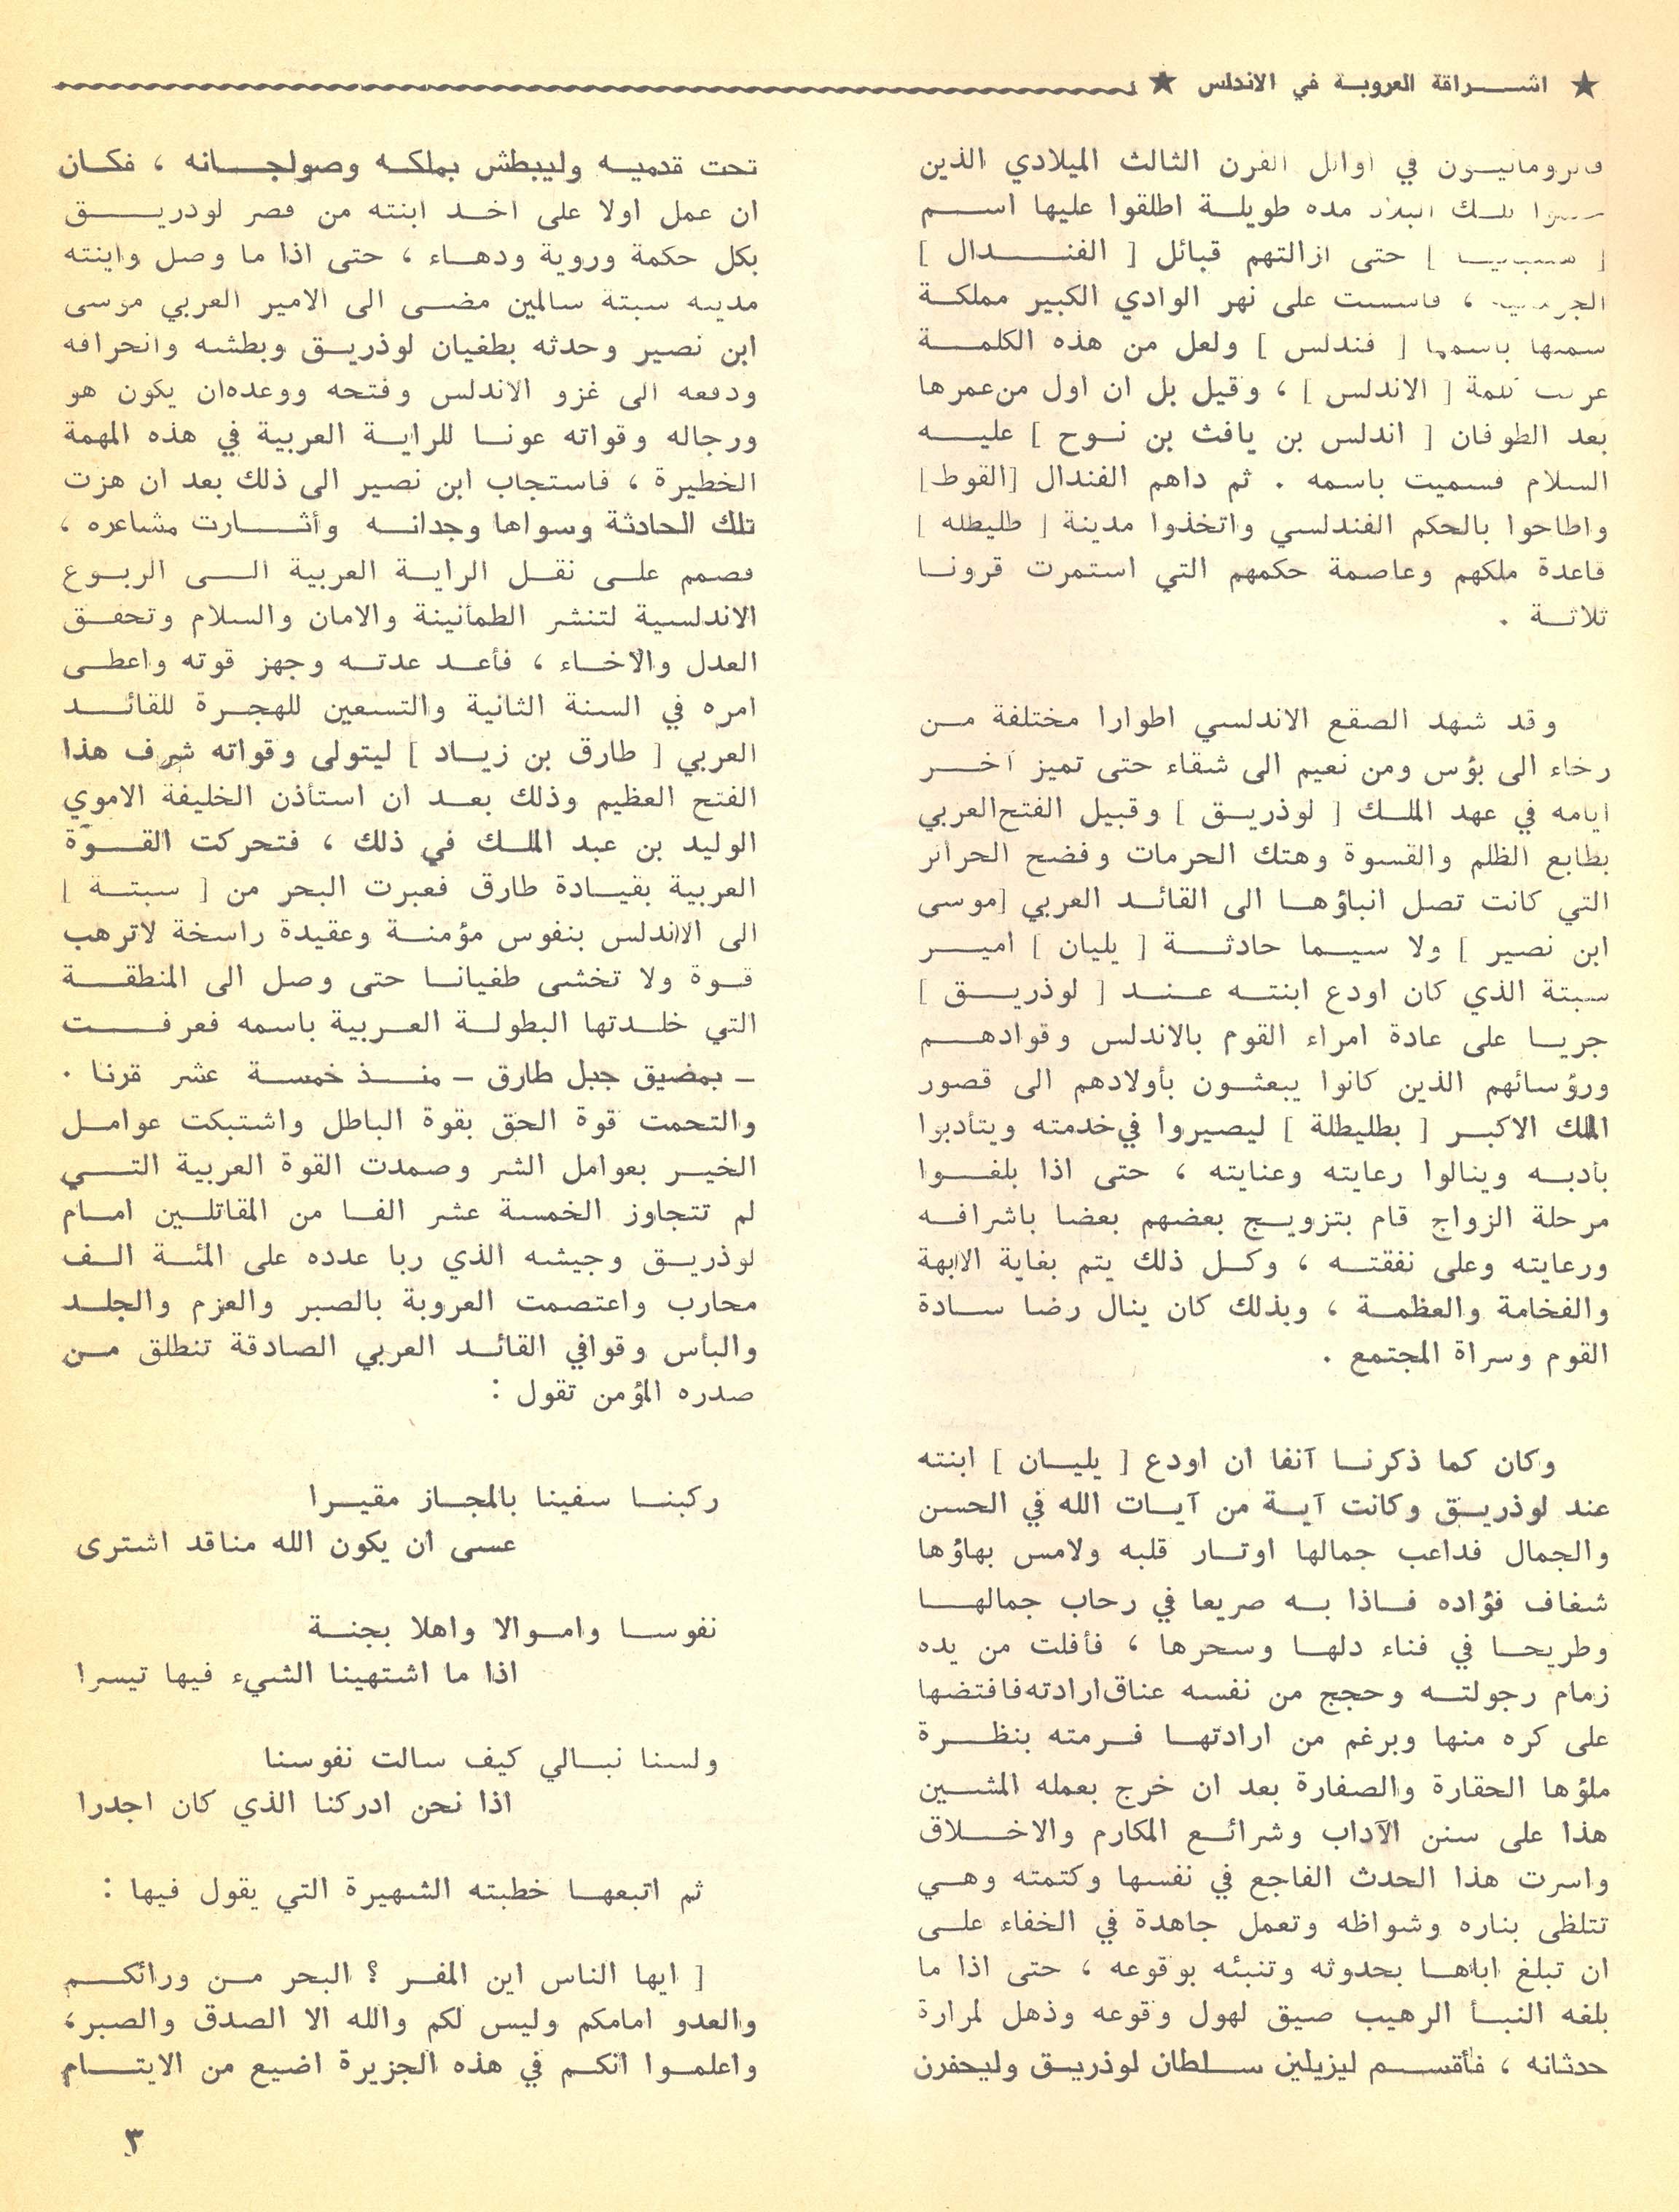 ★ اشراقة العروبة في الاندلس ★
فالرومانيون في اوائل القرن الثالث الميلادي الذين
تلك البلاد مدة طويلة اطلقوا عليها اسم
[ ] حتى ازالتهم قبائل [ الفندال ]
، فاسست على نهر الوادي الكبير مملكة
سمتها باسمها [ فندلس ] ولعل من هذه الكلمة
عربت كلمة [ الاندلس ] ، وقيل بل ان اول من عمرها
بعد الطوفان [ اندلس بن يافث بن نوح ] عليه
السلام فسميت باسمه . ثم داهم الفندال [القوط]
واطاحوا بالحكم الفندلسي واتخذوا مدينة [ طليطله ]
قاعدة ملكهم وعاصمة حكمهم التي استمرت قرونا
ثلاثة .
وقد شهد الصقع الاندلسي اطوارا مختلفة من
رخاء الى بؤس ومن نعيم الى شقاء حتى تميز آخر
ايامه في عهد الملك [ لوذريق ] وقبيل الفتح العربي
بطابع الظلم والقسوة وهتك الحرمات وفضح الحرائر
التي كانت تصل انباؤها الى القائد العربي [موسى
ابن نصير ] ولا سيما حادثة [ يليان ] امير
سبتة الذي كان اودع ابنته عند [ لوذريق ]
جريا على عادة امراء القوم بالاندلس وقوادهم
ورؤسائهم الذين كانوا يبعثون بأولادهم الى قصور
الملك الاكبر [ بطليطلة ] ليصيروا في خدمته ويتأدبوا
بأدبه وينالوا رعايته وعنايته ، حتى اذا بلغوا
مرحلة الزواج قام بتزويج بعضهم بعضا باشرافه
ورعايته وعلى نفقته ، وكل ذلك يتم بغاية الابهة
والفخامة والعظمة ، وبذلك كان ينال رضا سادة
القوم وسراة المجتمع .
وكان كما ذكرنا آنفا ان اودع [ يليان ] ابنته
عند لوذريق وكانت آية من آيات الله في الحسن
والجمال فداعب جمالها اوتار قلبه ولامس بهاؤها
شغاف فؤاده فاذا به صريعا في رحاب جمالها
وطريحا في فناء دلها وسحرها ، فأفلت من يده
زمام رجولته وحجج من نفسه عناق ارادته فافتضها
على كره منها وبرغم من ارادتها فرمته بنظرة
ملؤها الحقارة والصغارة بعد ان خرج بعمله المشين
هذا على سنن الآداب وشرائع المكارم والاخلاق
واسرت هذا الحدث الفاجع في نفسها وكتمته وهي
تتلظى بناره وشواظه وتعمل جاهدة في الخفاء على
ان تبلغ اباها بحدوثه وتنبئه بوقوعه ، حتى اذا ما
بلغه النبأ الرهيب صيق لهول وقوعه وذهل لمرارة
حدثانه ، فأقسم ليزيلين سلطان لوذريق وليحفرن
تحت قدميه وليبطش بملكه وصولجانه ، فكان
ان عمل اولا على اخذ ابنته من قصر لوذريق
بكل حكمة وروية ودهاء ، حتى اذا ما وصل وابنته
مدينه سبتة سالمين مضى الى الامير العربي موسى
ابن نصير وحدثه بطغيان لوذريق وبطشه وانحرافه
ودفعه الى غزو الاندلس وفتحه ووعده ان يكون هو
ورجاله وقواته عونا للراية العربية في هذه المهمة
الخطيرة ، فاستجاب ابن نصير الى ذلك بعد ان هزت
تلك الحادثة وسواها وجدانه وأثارت مشاعره ،
فصمم على نقل الراية العربية الى الربوع
الاندلسية لتنشر الطمأنينة والامان والسلام وتحقق
العدل والاخاء ، فأعد عدته وجهز قوته واعطى
امره في السنة الثانية والتسعين للهجرة للقائد
العربي [ طارق بن زياد ] ليتولى وقواته شرف هذا
الفتح العظيم وذلك بعد ان استأذن الخليفة الاموي
الوليد بن عبد الملك في ذلك ، فتحركت القوّة
العربية بقيادة طارق فعبرت البحر من [ سبتة ]
الى الاندلس بنفوس مؤمنة وعقيدة راسخة لاترهب
قوة ولا تخشى طغيانا حتى وصل الى المنطقة
التي خلدتها البطولة العربية باسمه فعرفت
ـ بمضيق جبل طارق ـ منذ خمسة عشر قرنا .
والتحمت قوة الحق بقوة الباطل واشتبكت عوامل
الخير بعوامل الشر وصمدت القوة العربية التي
لم تتجاوز الخمسة عشر الفا من المقاتلين امام
لوذريق وجيشه الذي ربا عدده على المئة الف
محارب واعتصمت العروبة بالصبر والعزم والجلد
والبأس وقوافي القائد العربي الصادقة تنطلق من
صدره المؤمن تقول :
ركبنا سفينا بالمجاز مقيرا
عسى ان يكون الله مناقد اشترى
نفوسا واموالا واهلا بجنة
اذا ما اشتهينا الشيء فيها تيسرا
ولسنا نبالي كيف سالت نفوسنا
اذا نحن ادركنا الذي كان اجدرا
ثم اتبعها خطبته الشهيرة التي يقول فيها :
[ ايها الناس اين المفر ؟ البحر من ورائكم
والعدو امامكم وليس لكم والله الا الصدق والصبر،
واعلموا انكم في هذه الجزيرة اضيع من الايتام
٣